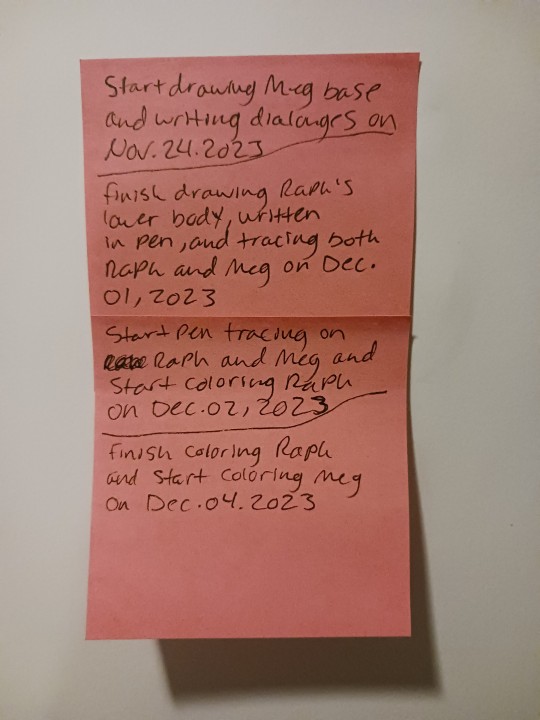 Start drawing Meg base
and writing dialouges on
Nov.24.2023
finish drawing Raph's
lower body, written
in pen, and tracing both
Raph and Meg on Dec.
01, 2023
Start pen tracing on
Raph and Meg and
Start coloring Raph
on Dec.02, 2023
finish coloring Raph
and start coloring Meg
on Dec.04.2023